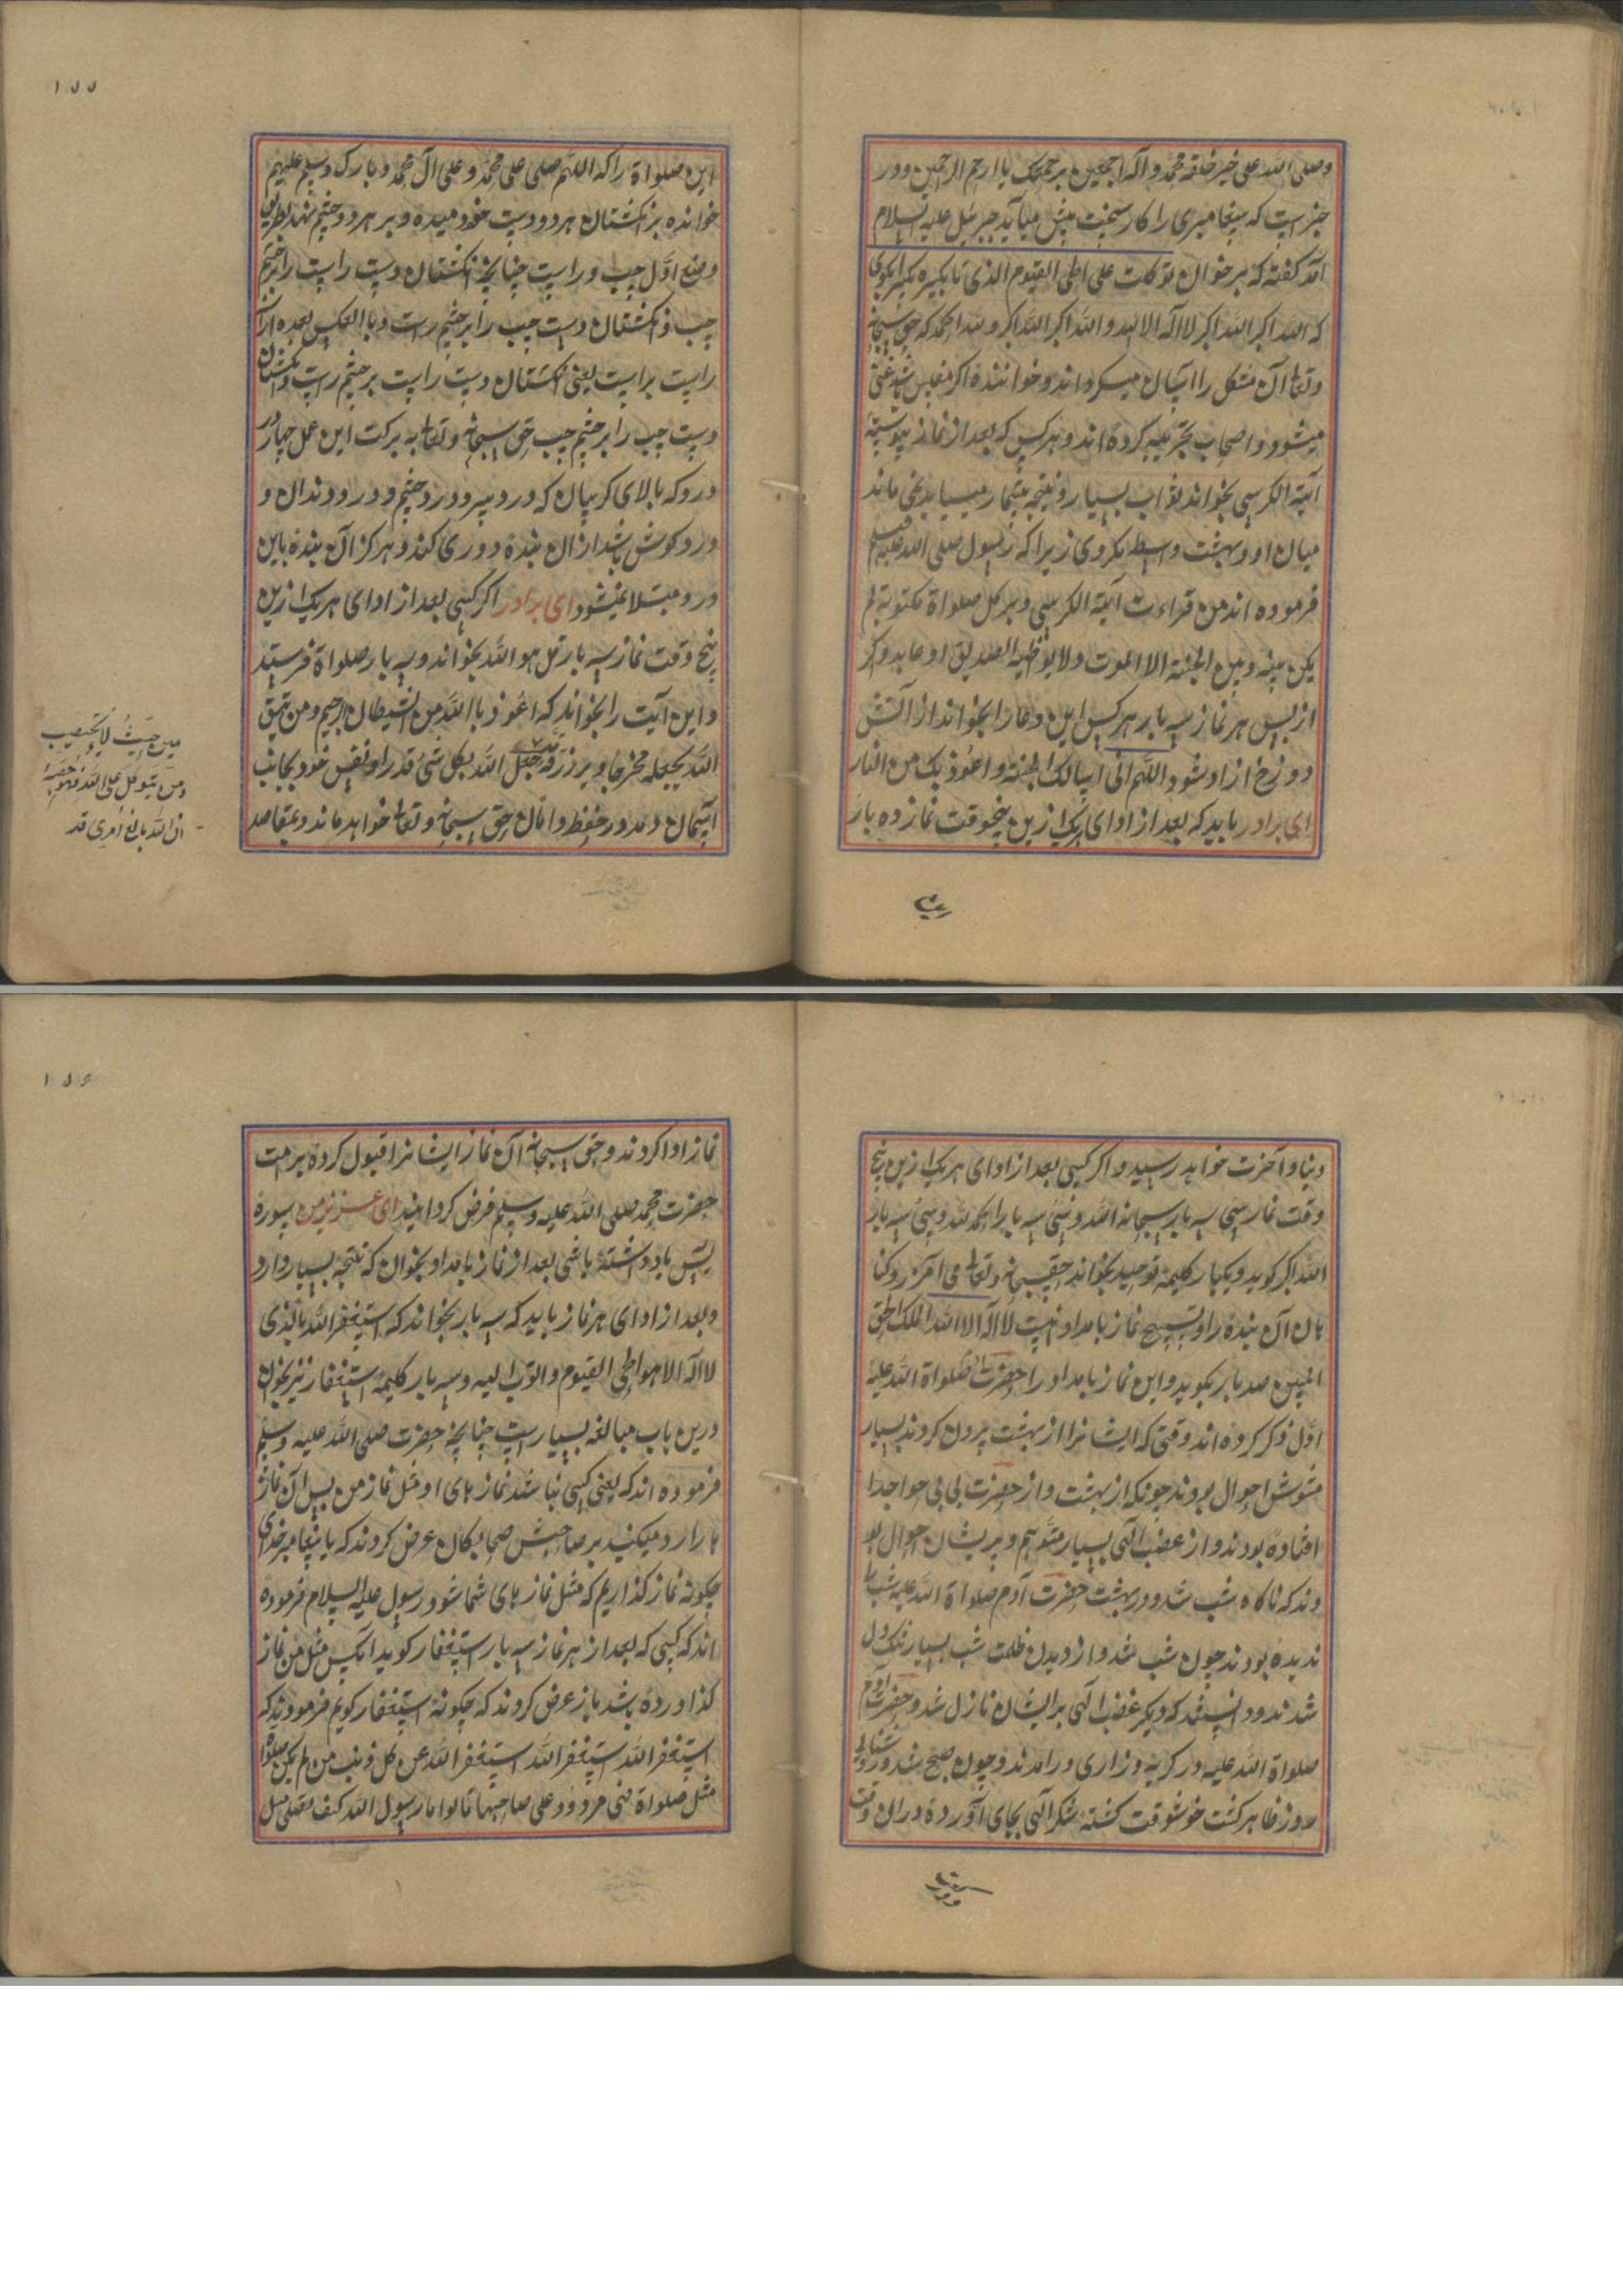 وصلی الله علی خیر خلقه محمد و اله اجمعین برحمتک یا ارحم الراحمین و در
خبر است که پیغامبری را کار سخت پیش میآید جبرئیل علیه السلام
آمد گفته که بر خوان توکلت علی الحی القیوم الذی تا بکبیره تکبیرا بکوی
که الله اکبر الله اکبر لا اله الا الله و الله اکبر الله اکبر و لله الحمد که حق سبحانه
و تعالی آن مشکل را آسان میکرداند و خواننده اگر مفلس باشد غنی
میشود و اصحاب تجربه کرده اند و هر کس که بعد از نماز پیوسته
آیة الکرسی بخواند ثواب بسیار و نتیجه بیشمار میباید یعنی ماند
میان او و بهشت واسطه مکروی زیرا که رسول صلی الله علیه وسلم
فرموده اند من قراءت آیة الکرسی و بر کل صلواة مکتوبة لم
یکن بینه و بین الجنة الا الموت ولا یواظبه الصدیق او عابد وکر
از پس هر نماز سه بار هر کس این دعا را بخواند از آتش
دوزخ ازاد شود اللهم انی اسالک الجنة و اعوذ بک من النار
ای برادر باید که بعد از ادای هر یک ازین پنجوقت نماز ده بار
۱۵۵
این صلواة را که اللهم صلی علی محمد و علی ال محمد و بارک وسلم علیهم
خوانده بر انکشتان هر دو دست خود میده و بر هر دو چشم نهد بطریق
وضع اول چپ و راست چنانچه انکشتان دست راست را بر چشم
چپ و انکشتان دست چپ را بر چشم راست و با العکس بعده ازان
راست براست یعنی انکشتان دست راست بر چشم راست و انکشتان
دست چپ را بر چشم چپ حق سبحانه و تعالی به برکت این عمل چهار در
درو که بالای کریبان که درد سر و درد چشم و درد دندان و
درد کوش باشد از ان بنده دوری کند و هر کز آن بنده باین
درد مبتلا نمیشود ای برادر اکر کسی بعد از ادای هر یک ازین
پنج وقت نماز سه بار قل هو الله بخواند و سه بار صلواة فرستد
و این آیت را بخواند که اعوذ با الله من الشیطان الرجیم و من یتق
الله یجعله مخرجا و یرزقه جعل الله بکل شی قدرا و نفس خود بجانب
آسمان دمد در حفظ و امان حق سبحانه و تعالی خواهد ماند و بمقاصد
من حیث لا یحتسب
ومن یتوکل علی الله فهو حسبه
ان الله بالغ امره قد
دنیا و آخرت خواهد رسید و اکر کسی بعد از ادای هر یک ازین پنج
وقت نماز سی سه بار سبحانه الله و سی سه بار الحمد لله و سی سه بار
الله اکبر کوید و یکبار کلیمه توحید بخواند حقسبحانه و تعالی می آمرزد کنا
هان آن بنده را و تسبیح نماز بامداد نیست لا اله الا الله الملک الحق
المبین صد بار بکوید و این نماز بامداد را حضرت آدم صلواة الله علیه
اول ذکر کرده اند وقتی که ایشانرا از بهشت برون کردند بسیار
مشوش احوال بودند چونکه از بهشت و از حضرت بی بی حوا جدا
افتاده بودند و از غضب الهی بسیار متوهم و پریشان احوال بو
دند که ناکاه شب شد و در بهشت حضرت آدم صلواة الله علیه شب را
ندیده بودند چون شب شد و از دیدن ظلمت شب بسیار تنک دل
شدند و دانستند که دیکر غضب الهی بر ایشان نازل شد و حضرت آدم
صلواة الله علیه در کریه و زاری در امدند و چون صبح شد و روشنائی
روز ظاهر کشت خوشوقت کشته شکر الهی بجای آورده در ان وقت
۱۵۶
نماز ادا کردند و حق سبحانه آن نماز ایشانرا قبول کرده بر امت
حضرت محمد صلی الله علیه وسلم فرض کردانید ای عزیز من سوره
یس یاد داشته باشی بعد از نماز بامداد بخوان که نتیجه بسیار دارد
و بعد از ادای هر نماز باید که سه بار بخواند که استغفر الله الذی
لا اله الا هو الحی القیوم و اتوب الیه و سه بار کلیمه استغفار نیز بخوان
درین باب مبالغه بسیار است چنانچه حضرت صلی الله علیه وسلم
فرموده اند که یعنی کسی نباشد نماز های او مثل نماز من پس آن نماز
ها را رد میکنید بر صاحبش صحابکان عرض کردند که یا پیغامبر خدای
چکونه نماز کذاریم که مثل نماز های شما شود رسول علیه السلام فرموده
اند که کسی که بعد از هر نماز سه بار استغفار کوید انکس مثل من نماز
کذاورده باشد باز عرض کردند که چکونه استغفار کویم فرمودند که
استغفر الله استغفر الله استغفر الله من کل ذنب من لم یکن صلواة
مثل صلواة فهی مردود علی صاحبها قالوا یا رسول الله کیف نصلی مثل